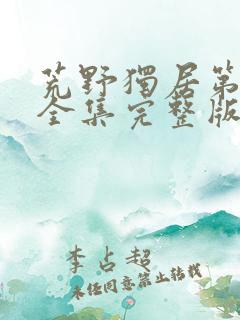 荒野獨居第
全集完整版
李占超
未经同意禁止转载